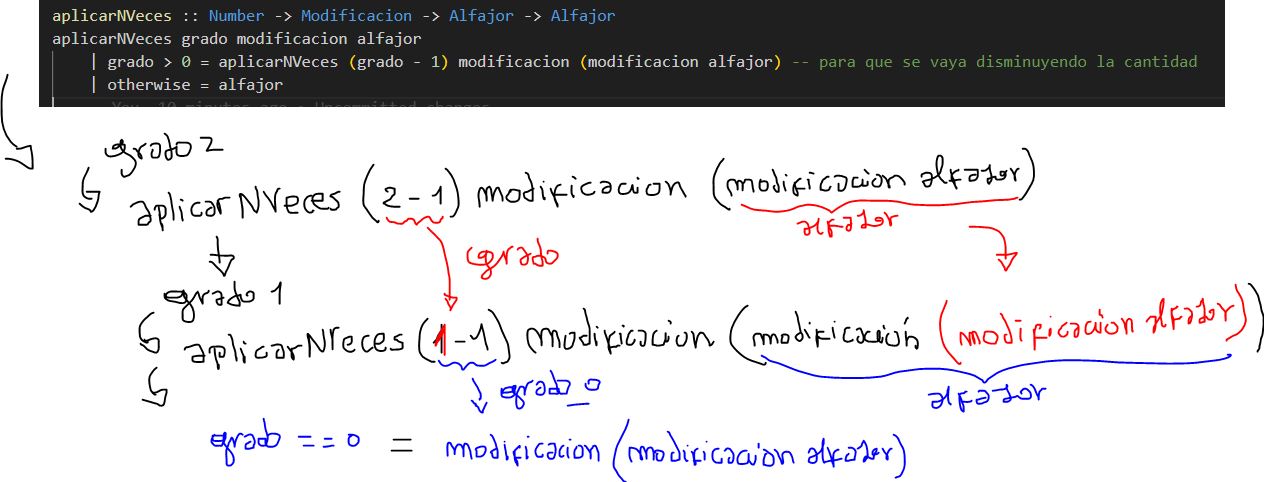 aplicarNVeces :: Number -> Modificacion -> Alfajor -> Alfajor
aplicarNVeces grado modificacion alfajor
| grado > 0 = aplicarNVeces (grado - 1) modificacion (modificacion alfajor) -- para que se vaya disminuyendo la cantidad
| otherwise = alfajor
You, 10 minutes ago • Uncommitted changes
grado 2
aplicarNVeces (2-1) modificacion (modificacion alfajor)
alfajor
grado
grado 1
aplicarNVeces (1-1) modificacion (modificación (modificacion alfajor))
grado 0
alfajor
grado == 0 = modificacion (modificacion alfajor)